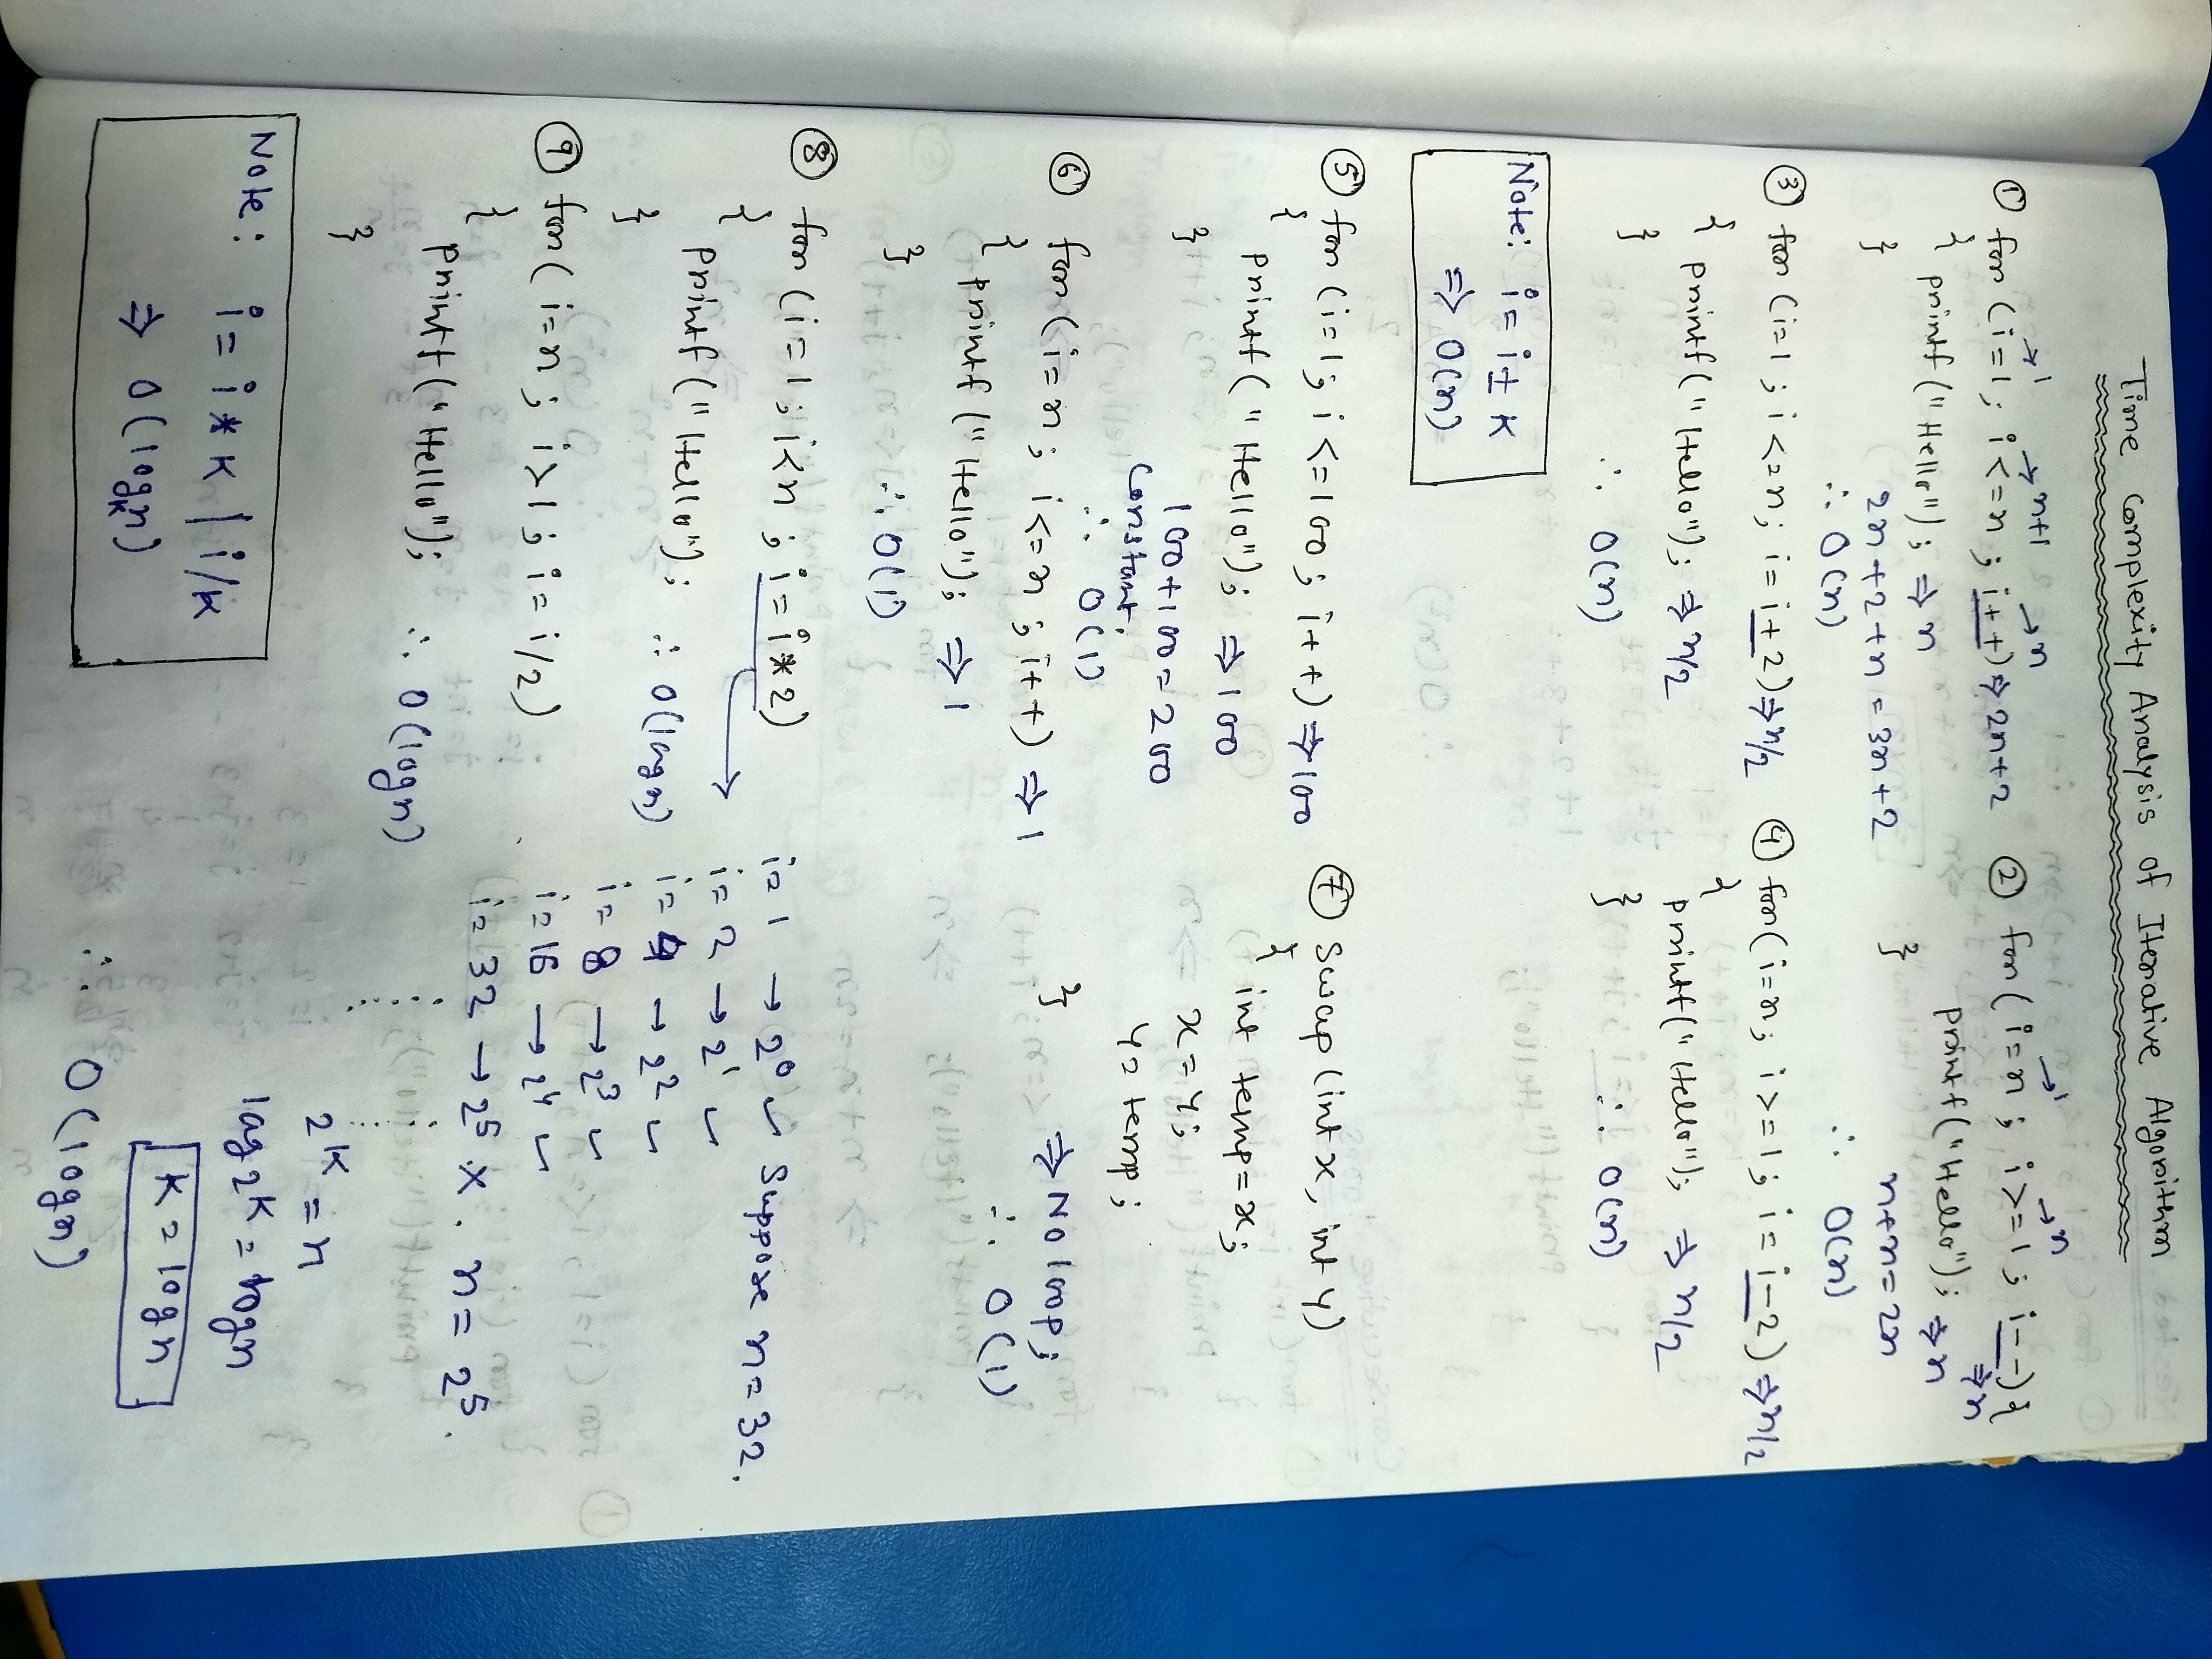 Time Complexity Analysis of Iterative Algorithm
① for (i=1; i<=n; i++) ⇒ 2n+2
→1 →n+1 →n
{ printf("Hello"); ⇒ n
}
2n+2+n = 3n+2
∴ O(n)
② for (i=n; i>=1; i--){
→1 →n ⇒n
printf("Hello"); ⇒ n
}
n+n=2n
∴ O(n)
③ for (i=1; i<=n; i=i+2) ⇒ n/2
{ printf("Hello"); ⇒ n/2
}
∴ O(n)
④ for (i=n; i>=1; i=i-2) ⇒ n/2
{ printf("Hello"); ⇒ n/2
}
∴ O(n)
Note: i = i ± K
⇒ O(n)
⑤ for (i=1; i<=100; i++) ⇒ 100
{ printf("Hello"); ⇒ 100
}
100+100=200
constant.
∴ O(1)
⑥ for (i=n; i<=n; i++) ⇒ 1
{ printf("Hello"); ⇒ 1
}
∴ O(1)
⑦ Swap (int x, int y)
{ int temp=x;
x=y;
y=temp;
}
⇒ No loop;
∴ O(1)
⑧ for (i=1; i<n; i=i*2)
{ printf("Hello");
}
∴ O(logn)
i=1 → 2⁰ ✓ Suppose n=32.
i=2 → 2¹ ✓
i=4 → 2² ✓
i=8 → 2³ ✓
i=16 → 2⁴ ✓
i=32 → 2⁵ ×. n = 2⁵.
2ᴷ = n
log2ᴷ = logn
K = logn
∴ O(logn)
⑨ for (i=n; i>1; i=i/2)
{ printf("Hello");
}
∴ O(logn)
Note: i = i * K | i/K
⇒ O(logₖn)